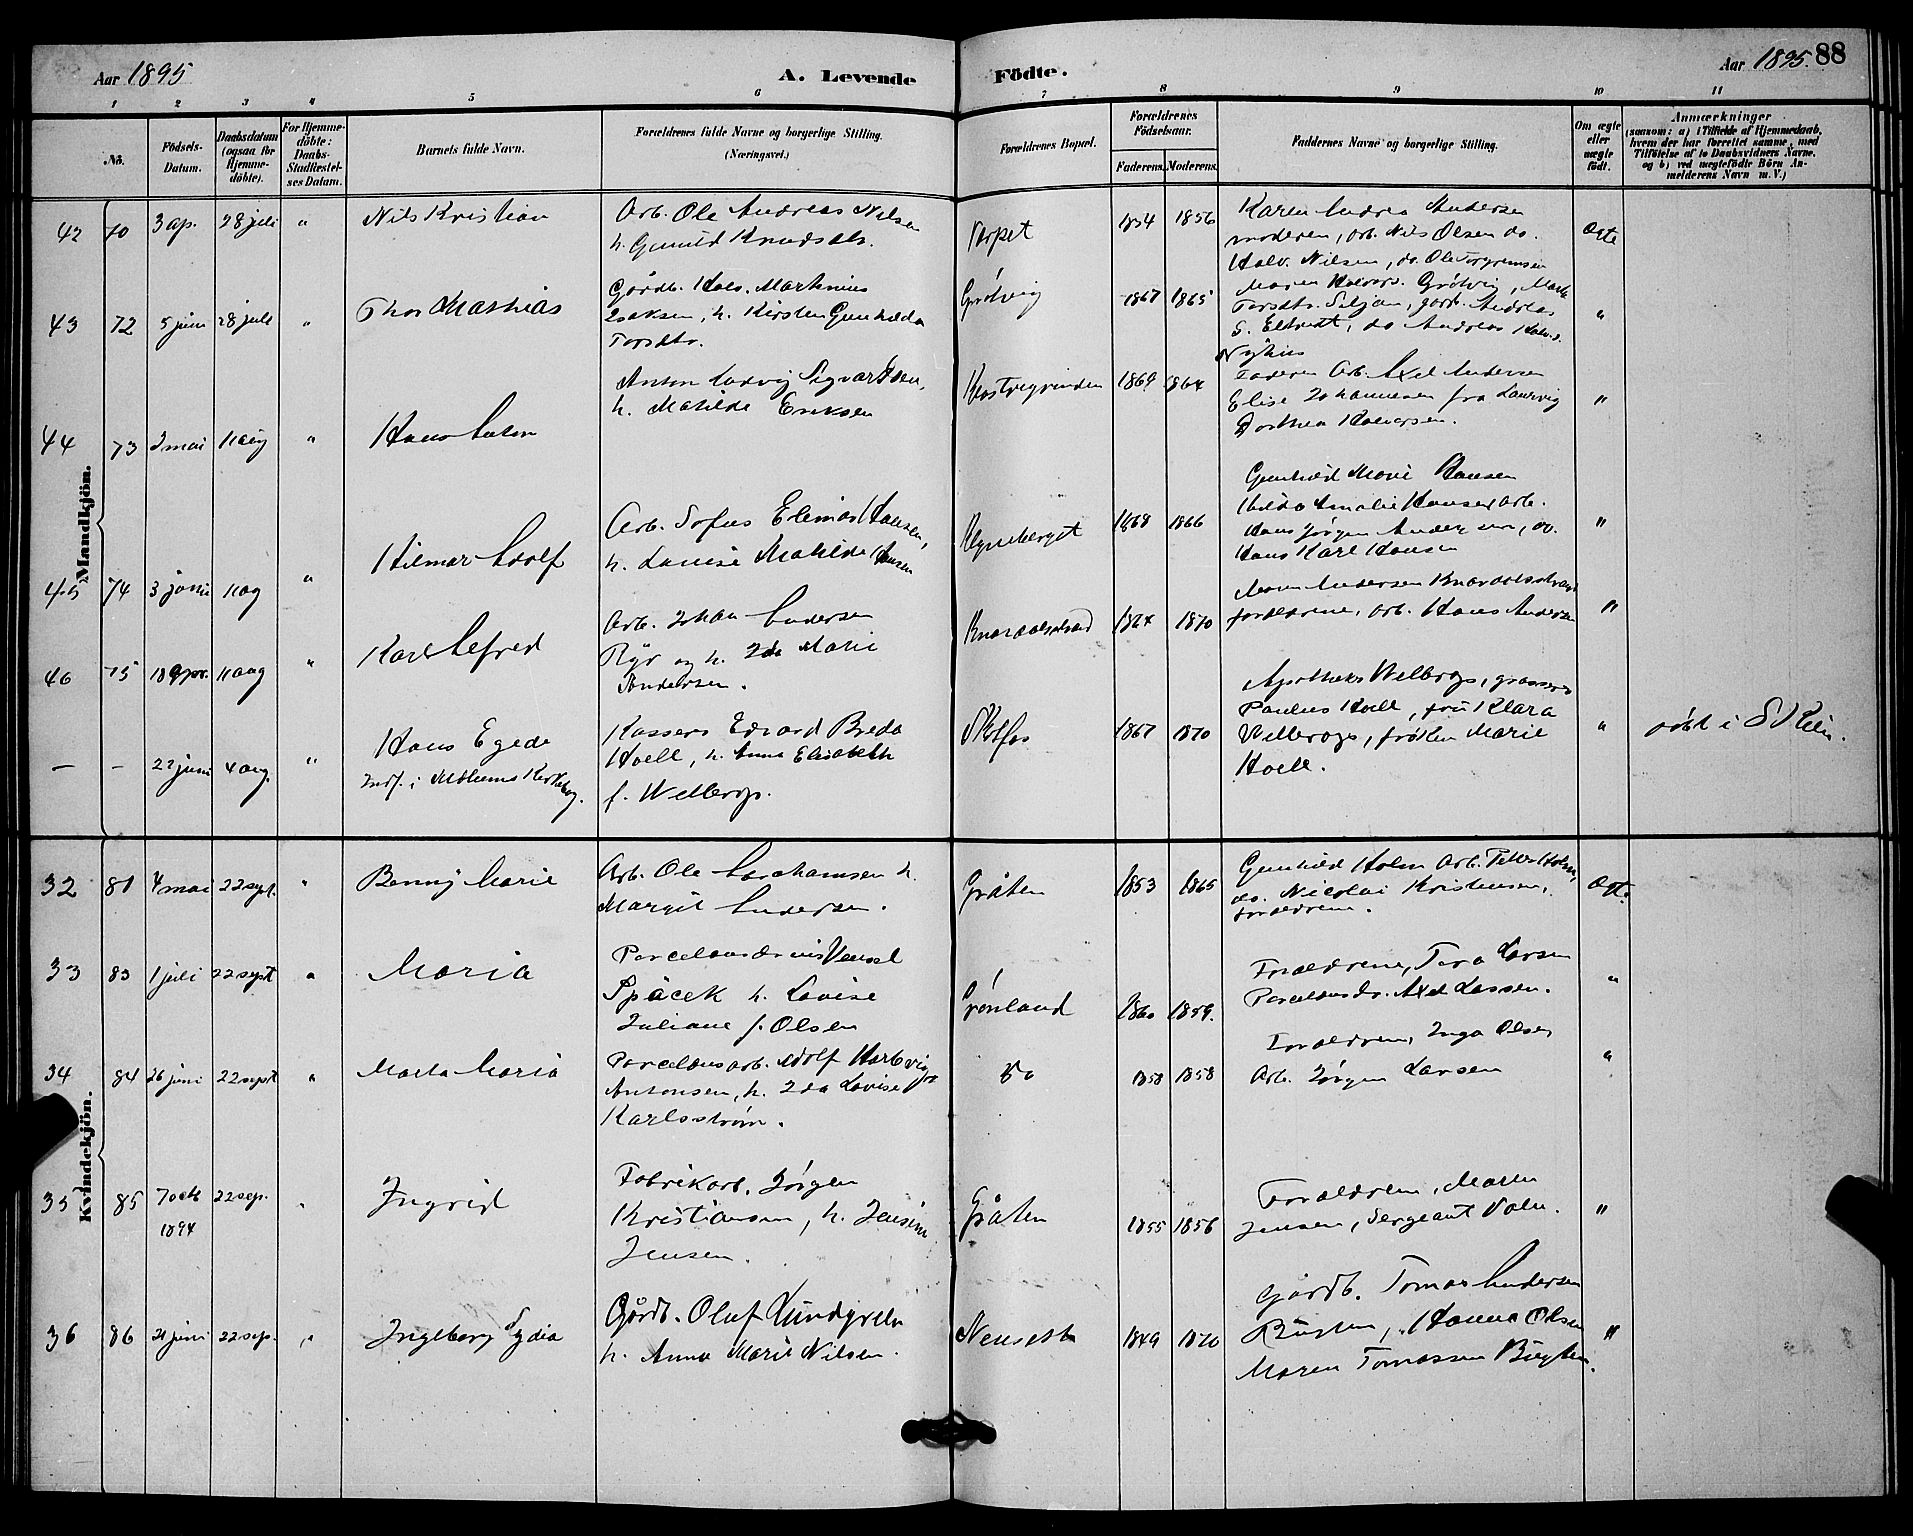 Aar 1895
A. Levende
Födte.
Aar 1895. 88
1 2 3 4 5 6 7 8 9 10 11
No.
Födsels-
Datum.
Daabsdatum
(ogsaa for
Hjemme-
döbte).
For Hjemme-
döbte:
Daabs-
Stadfæstel-
ses Datum.
Barnets fulde Navn.
Forældrenes fulde Navne og borgerlige Stilling.
(Næringsvei.)
Forældrenes Bopæl.
Forældrenes
Födselsaar.
Faderens. Moderens.
Faddernes Navne og borgerlige Stilling.
Om ægte
eller
uægte
födt.
Anmærkninger
(saasom: a) i Tilfælde af Hjemmedaab,
hvem der har forrettet samme, med
Tilföielse af to Daabsvidners Navne,
og b) ved uægtefödte Börn An-
melderens Navn m. V.)
Mandkjön.
42 70 3 ap. 28 juli " Nils Kristian
Arb. Ole Andreas Nilsen
h. Gunild Knudsdtr.
1834 1856
Karen Andrea Andersen
moderen, arb. Nils Olsen do.
Halv. Nilsen, do. Ole Torgrimsen
Ægte
43 72 5 juni 28 juli " Thor Mathias
Gårdb. Halv. Martinius
Isaksen, h. Kirsten Gunhilda
Torsdtr.
Grötvig 1867 1865
Maren Halvors. Grötvig,
Torsdtr. Siljan, gårdb. Andreas
do Andreas Halv.s.
Nyhus
"
44 73 2 mai 11 aug " Hans Anton
Anton Ludvig Sigvartsen,
h. Matilde Eriksen
1869 1864
Faderen Arb. Axel Andersen
Elise Johannesen fra Laurvig
Dorthea Halvorsen.
"
45 74 3 juni 11 ag " Hilmar Adolf
Arb. Sofus Elimar Hansen,
h. Lovise Matilde Hansen
1868 1866
Gunhild Marie Hansen
Hilda Amalie Hansen arb.
Hans Jørgen Andersen, do.
Hans Karl Hansen
"
46 75 18 apr. 11 aug " Karl Alfred
Arb. Johan Andersen
Ryr og h. Ida Marie
Andersen.
Knardalstrand 1864 1870
Maren Andersen Knardalstrand
forældrene, arb. Hans Andersen
"
— — 22 juni 4 aug. " Hans Egede
Indf. i Molums Kirkebog.
Kasserer Edvard Breda
Hoell, h. Anna Elisabeth
f. Wellerop.
Skotfos 1867 1870
Apotheker Wellerop, grosserer
Paulus Hoell, frú Klara
Wellerop, frøken Marie
Hoell.
"
døbt i Skien.
Kvindekjön.
32 81 4 mai 22 sept. " Benny Marie
Arb. Ole Abrahamsen h.
Margit Andersen.
Gråten 1853 1865
Gunhild Holm Arb. Peter Holm,
do. Nicolai Kristensen,
forældrene.
Ægte.
33 83 1 juli 22 sept " Maria
Porcelænsdreier Vensel
Spácek h. Lovise
Juliane f. Olsen
Grønland 1860 1859.
Forældrene, Tora Larsen
Porcelænsdr. Axel Larsen.
"
34 84 26 juni 22 sept " Marta Maria
Porcelænsarb. Adolf Hartvig
Antonsen, h. Ida Lovise
Karlsstrøm.
Do 1858 1858
Forældrene, Inga Olsen
Arb. Jörgen Larsen
"
35 85 7 octb 22 sep. " Ingrid
1894
Fabrikarb. Jörgen
Kristiansen, h. Jensine
Jensen.
Gråten 1855 1856
Forældrene, Maren
Jensen, Sergeant Valu.
"
36 86 21 juni 22 sep. " Ingeborg Lydia
Gårdb. Oluf Lundgreen
h. Anna Marie Nilsen.
Nenseth 1849 1870
Gårdb. Tomas Andersen
Bugten, Hanna Olsen
Maren Tomassen Bugten.
"